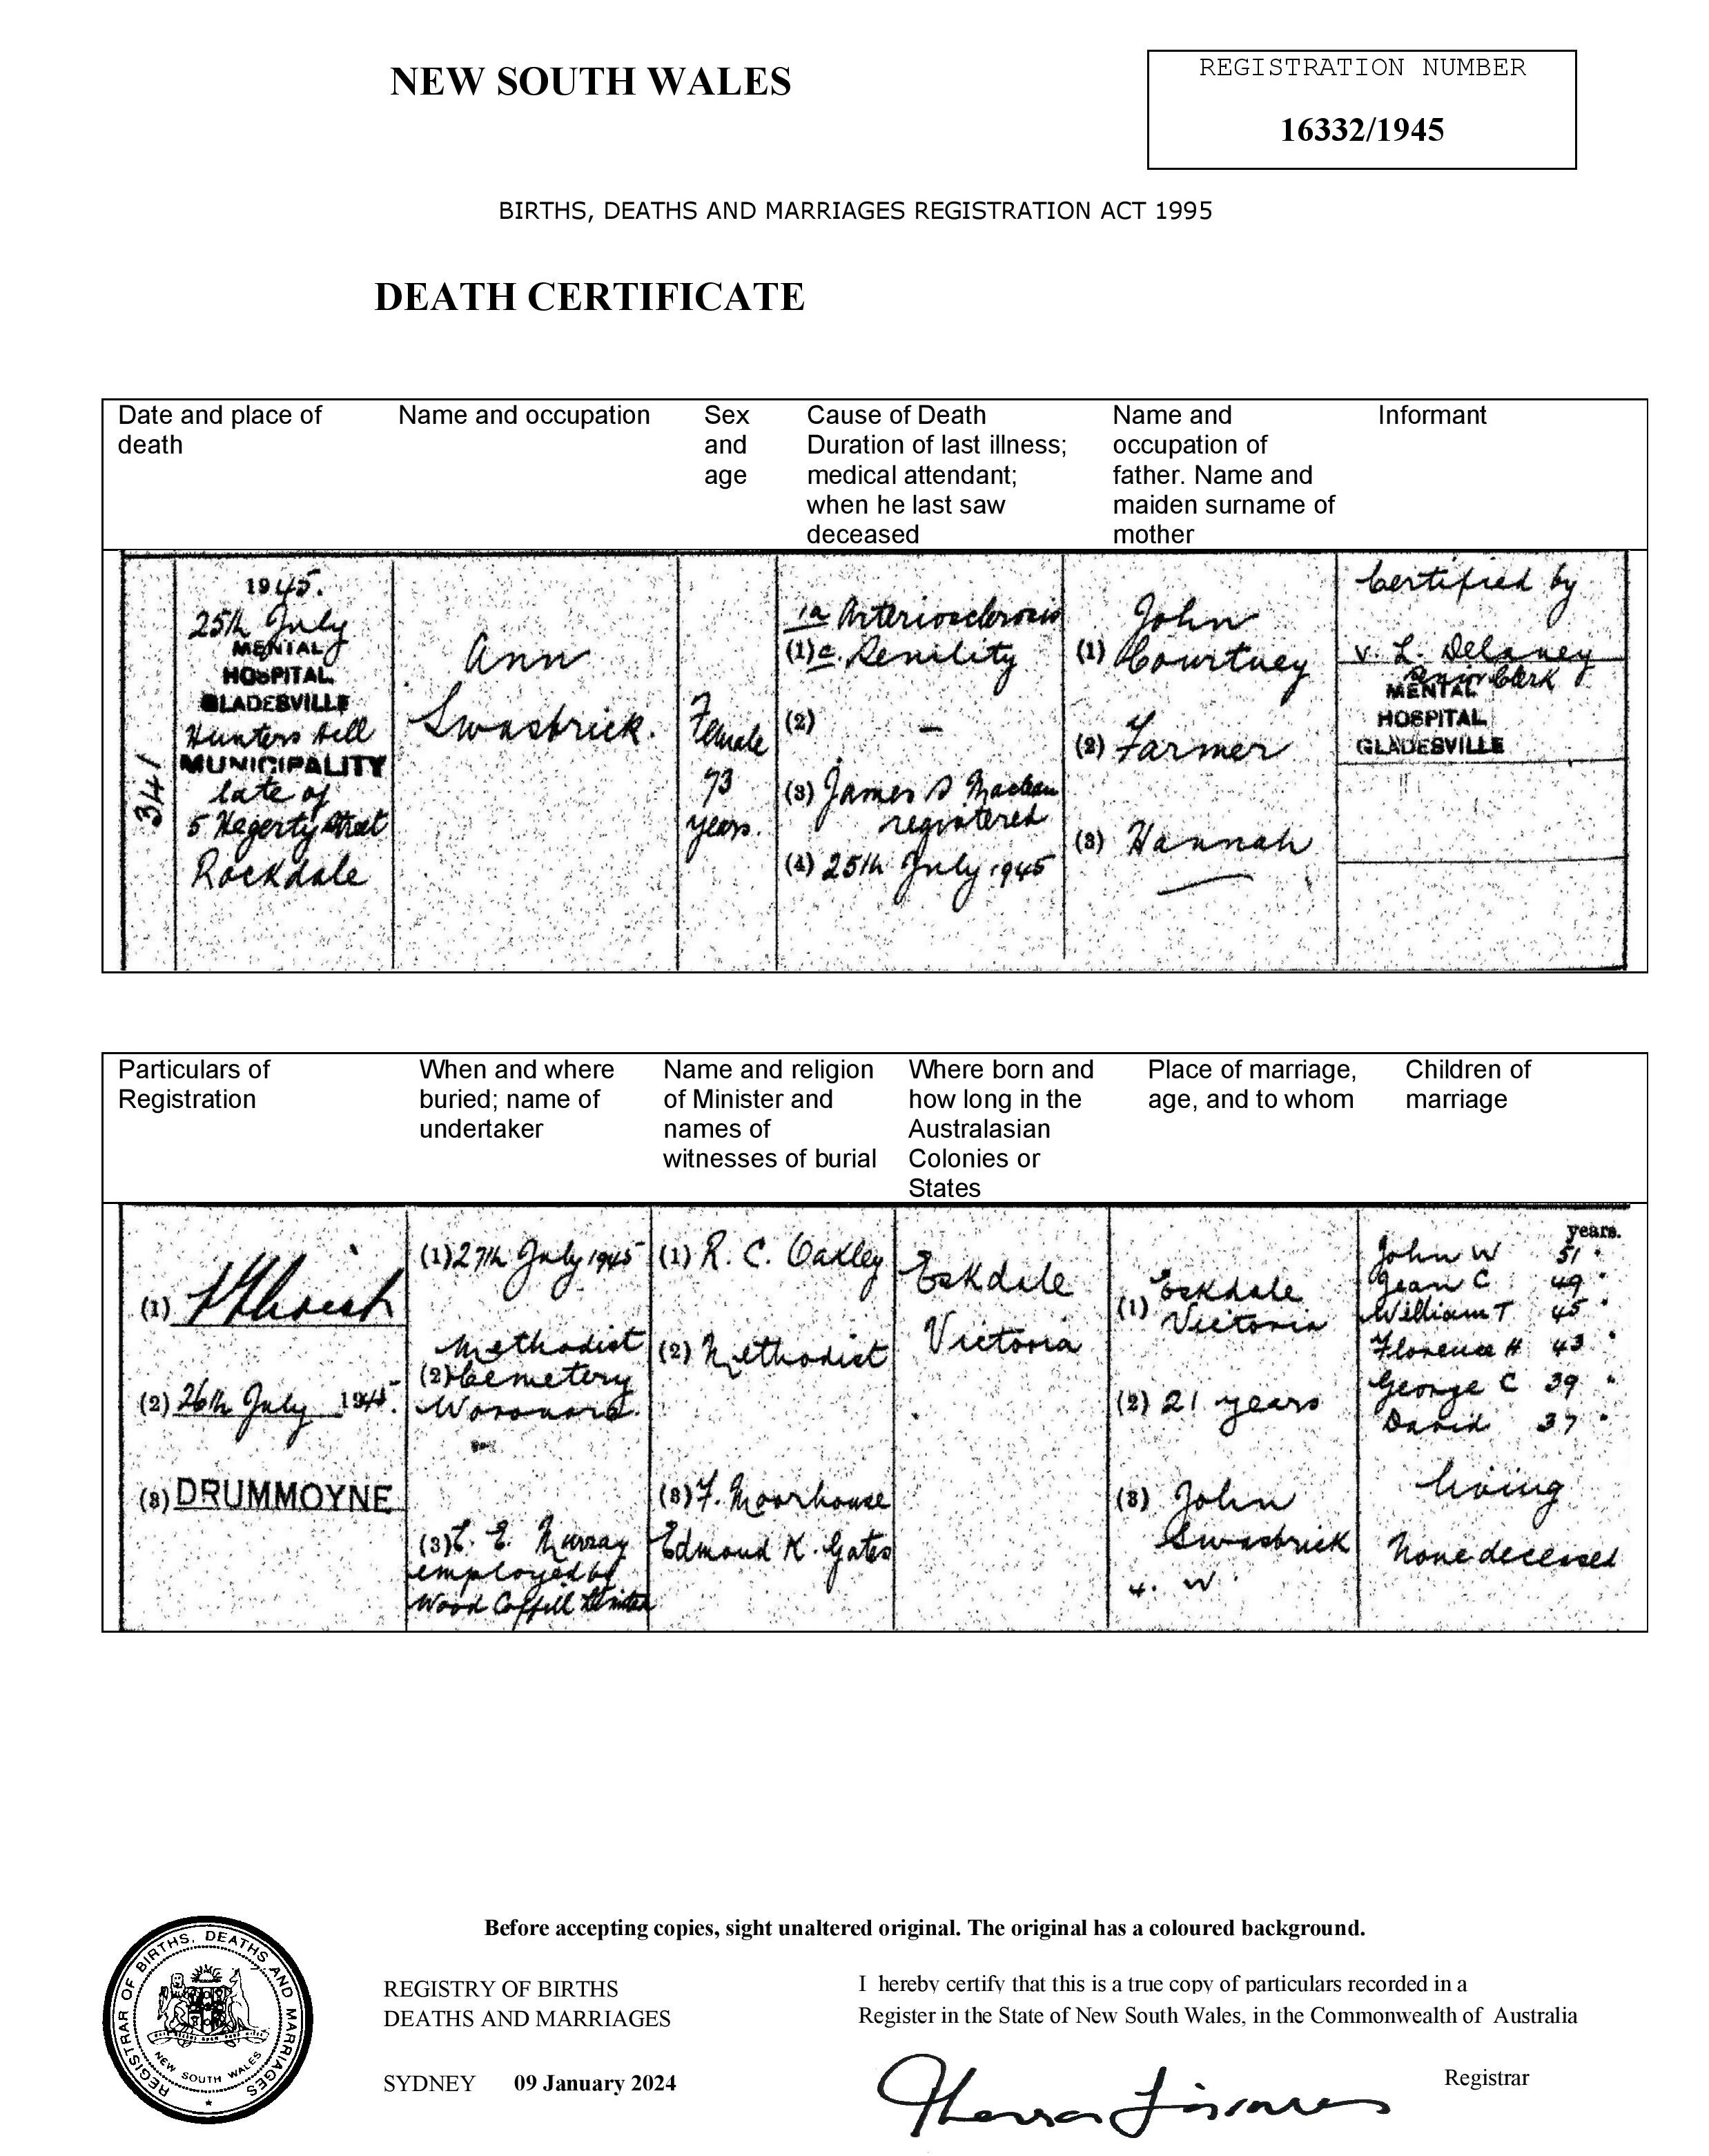 NEW SOUTH WALES
REGISTRATION NUMBER
16332/1945
BIRTHS, DEATHS AND MARRIAGES REGISTRATION ACT 1995
DEATH CERTIFICATE
Date and place of
death
Name and occupation
Sex
and
age
Cause of Death
Duration of last illness;
medical attendant;
when he last saw
deceased
Name and
occupation of
father. Name and
maiden surname of
mother
Informant
341
1945.
25th July
MENTAL
HOSPITAL
GLADESVILLE
Hunters Hill
MUNICIPALITY
late of
5 Hegerty Street
Rockdale
Ann
Swasbrick.
Female
73
years.
1a Arteriosclerosis
(1) c. Senility
(2) –
(3) James S Maclean
registered
(4) 25th July 1945
John
(1) Courtney
(2) Farmer
(3) Hannah
Certified by
V. L. Delaney
Clerk
MENTAL
HOSPITAL
GLADESVILLE
Particulars of
Registration
When and where
buried; name of
undertaker
Name and religion
of Minister and
names of
witnesses of burial
Where born and
how long in the
Australasian
Colonies or
States
Place of marriage,
age, and to whom
Children of
marriage
(1)
(2) 26th July 1945.
(3) DRUMMOYNE
(1) 27th July 1945
Methodist
(2) Cemetery
Woronora.
(3) E. Murray
employed by
Wood Coffill Limited
(1) R. C. Oakley
(2) Methodist
(3) F. Moorhouse
Edmond K. Gates
Eskdale
Victoria
Eskdale
(1) Victoria
(2) 21 years
(3) John
Swasbrick
W
years.
John W 51 "
Jean C 49 "
William T 45 "
Florence H 43 "
George C 39 "
David 37 "
living
None deceased
Before accepting copies, sight unaltered original. The original has a coloured background.
REGISTRAR OF BIRTHS, DEATHS AND MARRIAGES
NEW SOUTH WALES
REGISTRY OF BIRTHS
DEATHS AND MARRIAGES
SYDNEY 09 January 2024
I hereby certify that this is a true copy of particulars recorded in a
Register in the State of New South Wales, in the Commonwealth of Australia
Registrar